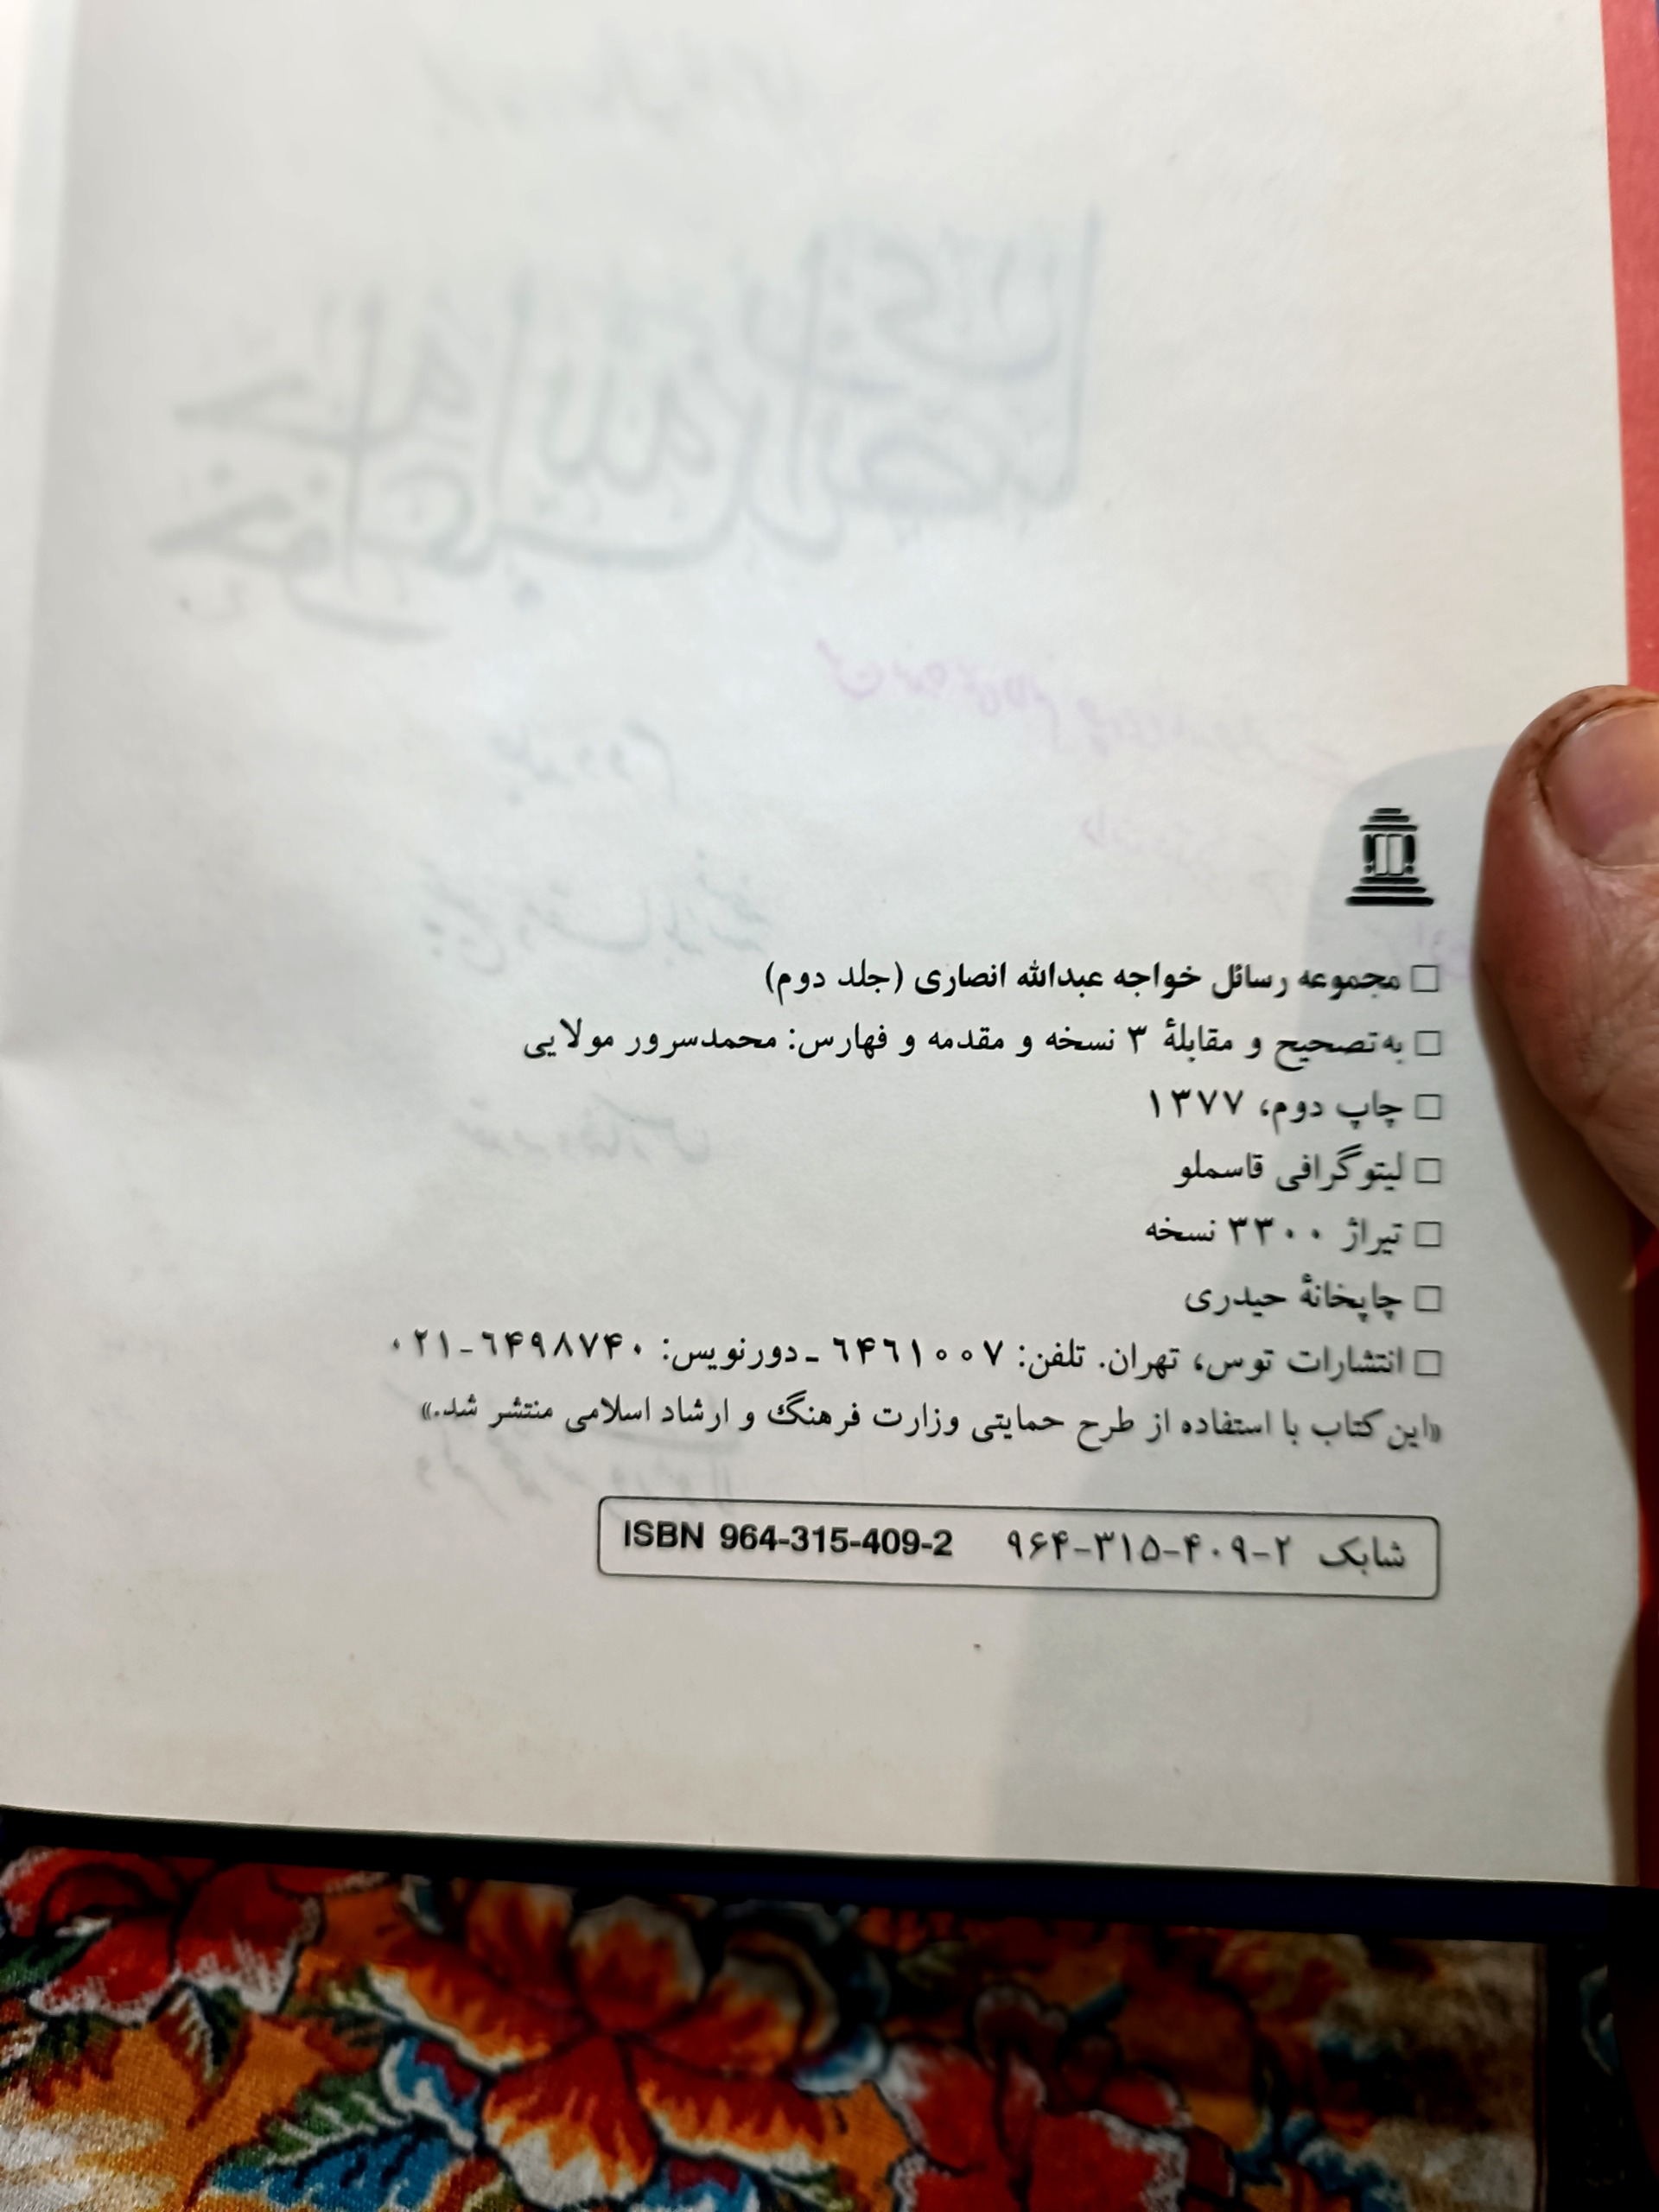 □ مجموعه رسائل خواجه عبدالله انصاری (جلد دوم)
□ به‌تصحیح و مقابلهٔ ۳ نسخه و مقدمه و فهارس: محمدسرور مولایی
□ چاپ دوم، ۱۳۷۷
□ لیتوگرافی قاسملو
□ تیراژ ۳۳۰۰ نسخه
□ چاپخانهٔ حیدری
□ انتشارات توس، تهران. تلفن: ۶۴۶۱۰۰۷ ـ دورنویس: ۶۴۹۸۷۴۰-۰۲۱
«این کتاب با استفاده از طرح حمایتی وزارت فرهنگ و ارشاد اسلامی منتشر شد.»
شابک ۲-۴۰۹-۳۱۵-۹۶۴ ISBN 964-315-409-2